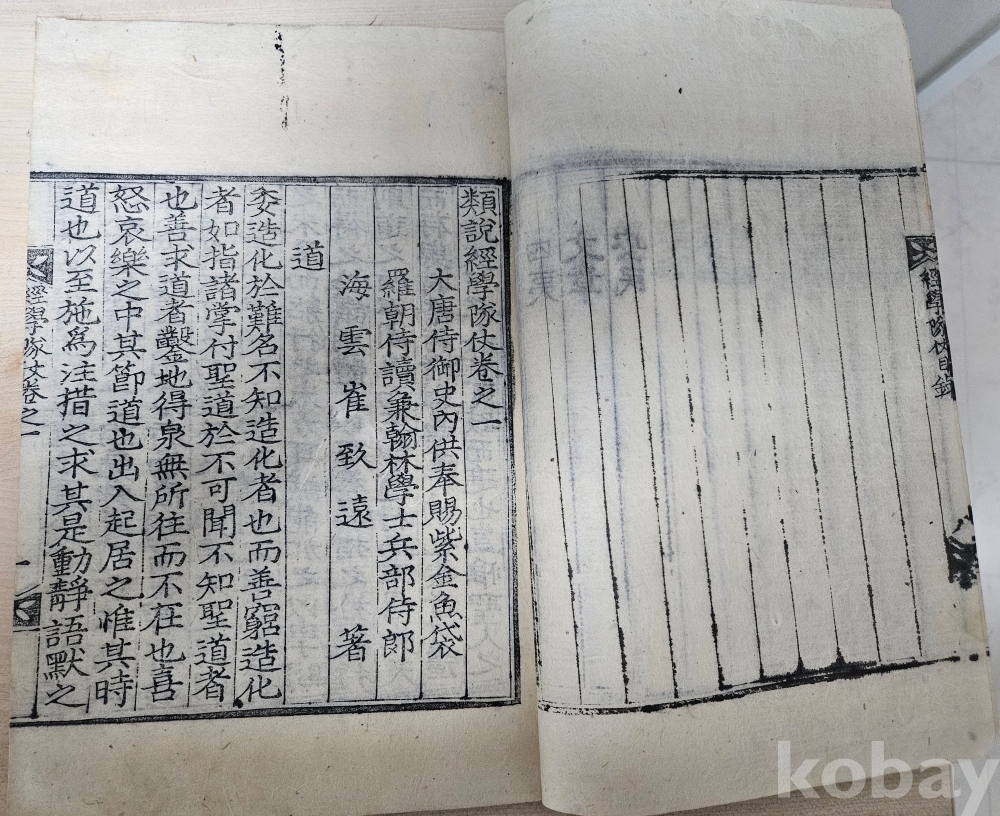 經學隊仗目錄
類說經學隊仗卷之一
大唐侍御史內供奉賜紫金魚袋
羅朝侍讀兼翰林學士兵部侍郎
海雲 崔致遠 著
道
委造化於難名不知造化者也而善窮造化
者如指諸掌付聖道於不可聞不知聖道者
也善求道者鑿地得泉無所往而不在也喜
怒哀樂之中其節道也出入起居之惟其時
道也以至施爲注措之求其是動靜語默之
經學隊仗卷之一
一
kobay